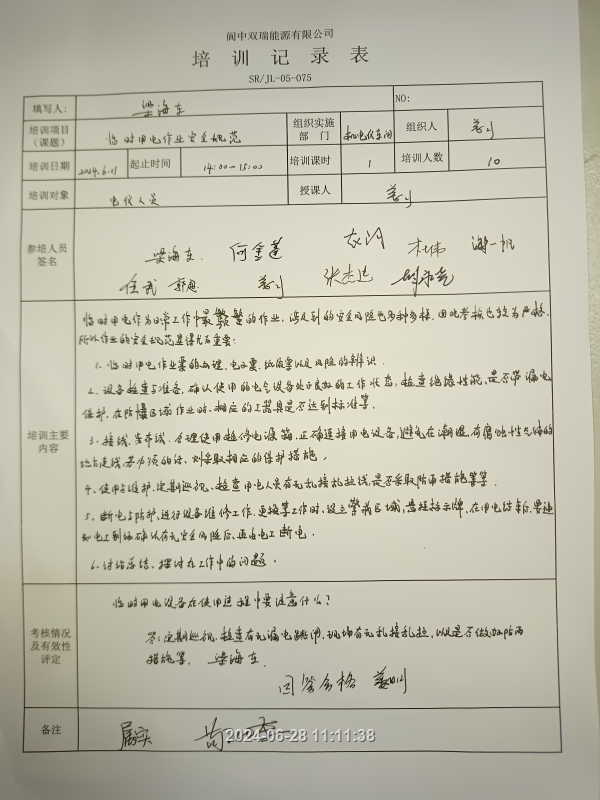 阆中双瑞能源有限公司
培训记录表
SR/JL-05-075
填写人: 梁海东 NO:
培训项目（课题） 临时用电作业安全规范 组织实施部门 机电仪车间 组织人
培训日期 2024.6.21 起止时间 14:00-15:00 培训课时 1 培训人数 10
培训对象 电仪人员 授课人
参培人员签名
梁海东 何金莲
任武 张杰达
培训主要内容
临时用电作为日常工作中最频繁的作业，涉及到的安全风险也多种多样，因此考核也较为严格，
所以作业的安全规范显得尤为重要：
1、临时用电作业票的办理，电子票、纸质票以及风险的辨识．
2、设备检查与准备，确认使用的电气设备处于良好的工作状态，检查绝缘性能、是否带漏电
保护，在防爆区域作业时，相应的工器具是否达到标准等．
3、接线、布线，合理使用检修电源箱，正确连接用电设备，避免在潮湿、有腐蚀性气体的
地点走线，若必须的话，则采取相应的保护措施．
4、使用与维护，定期巡视、检查用电人员有无乱接乱拉线，是否采取防雨措施等等．
5、断电与防护，进行设备维修工作，更换等工作时，设立警戒区域，悬挂指示牌，在用电结束后，要通
知电工到场确认有无安全风险后，再由电工断电．
6、讨论总结，探讨在工作中的问题．
考核情况及有效性评定
临时用电设备在使用过程中要注意什么？
答：定期巡视，检查有无漏电跳闸，现场有无乱接乱拉，以及是否做好防雨
措施等． 梁海东
回答合格
备注 属实
2024-06-28 11:11:38